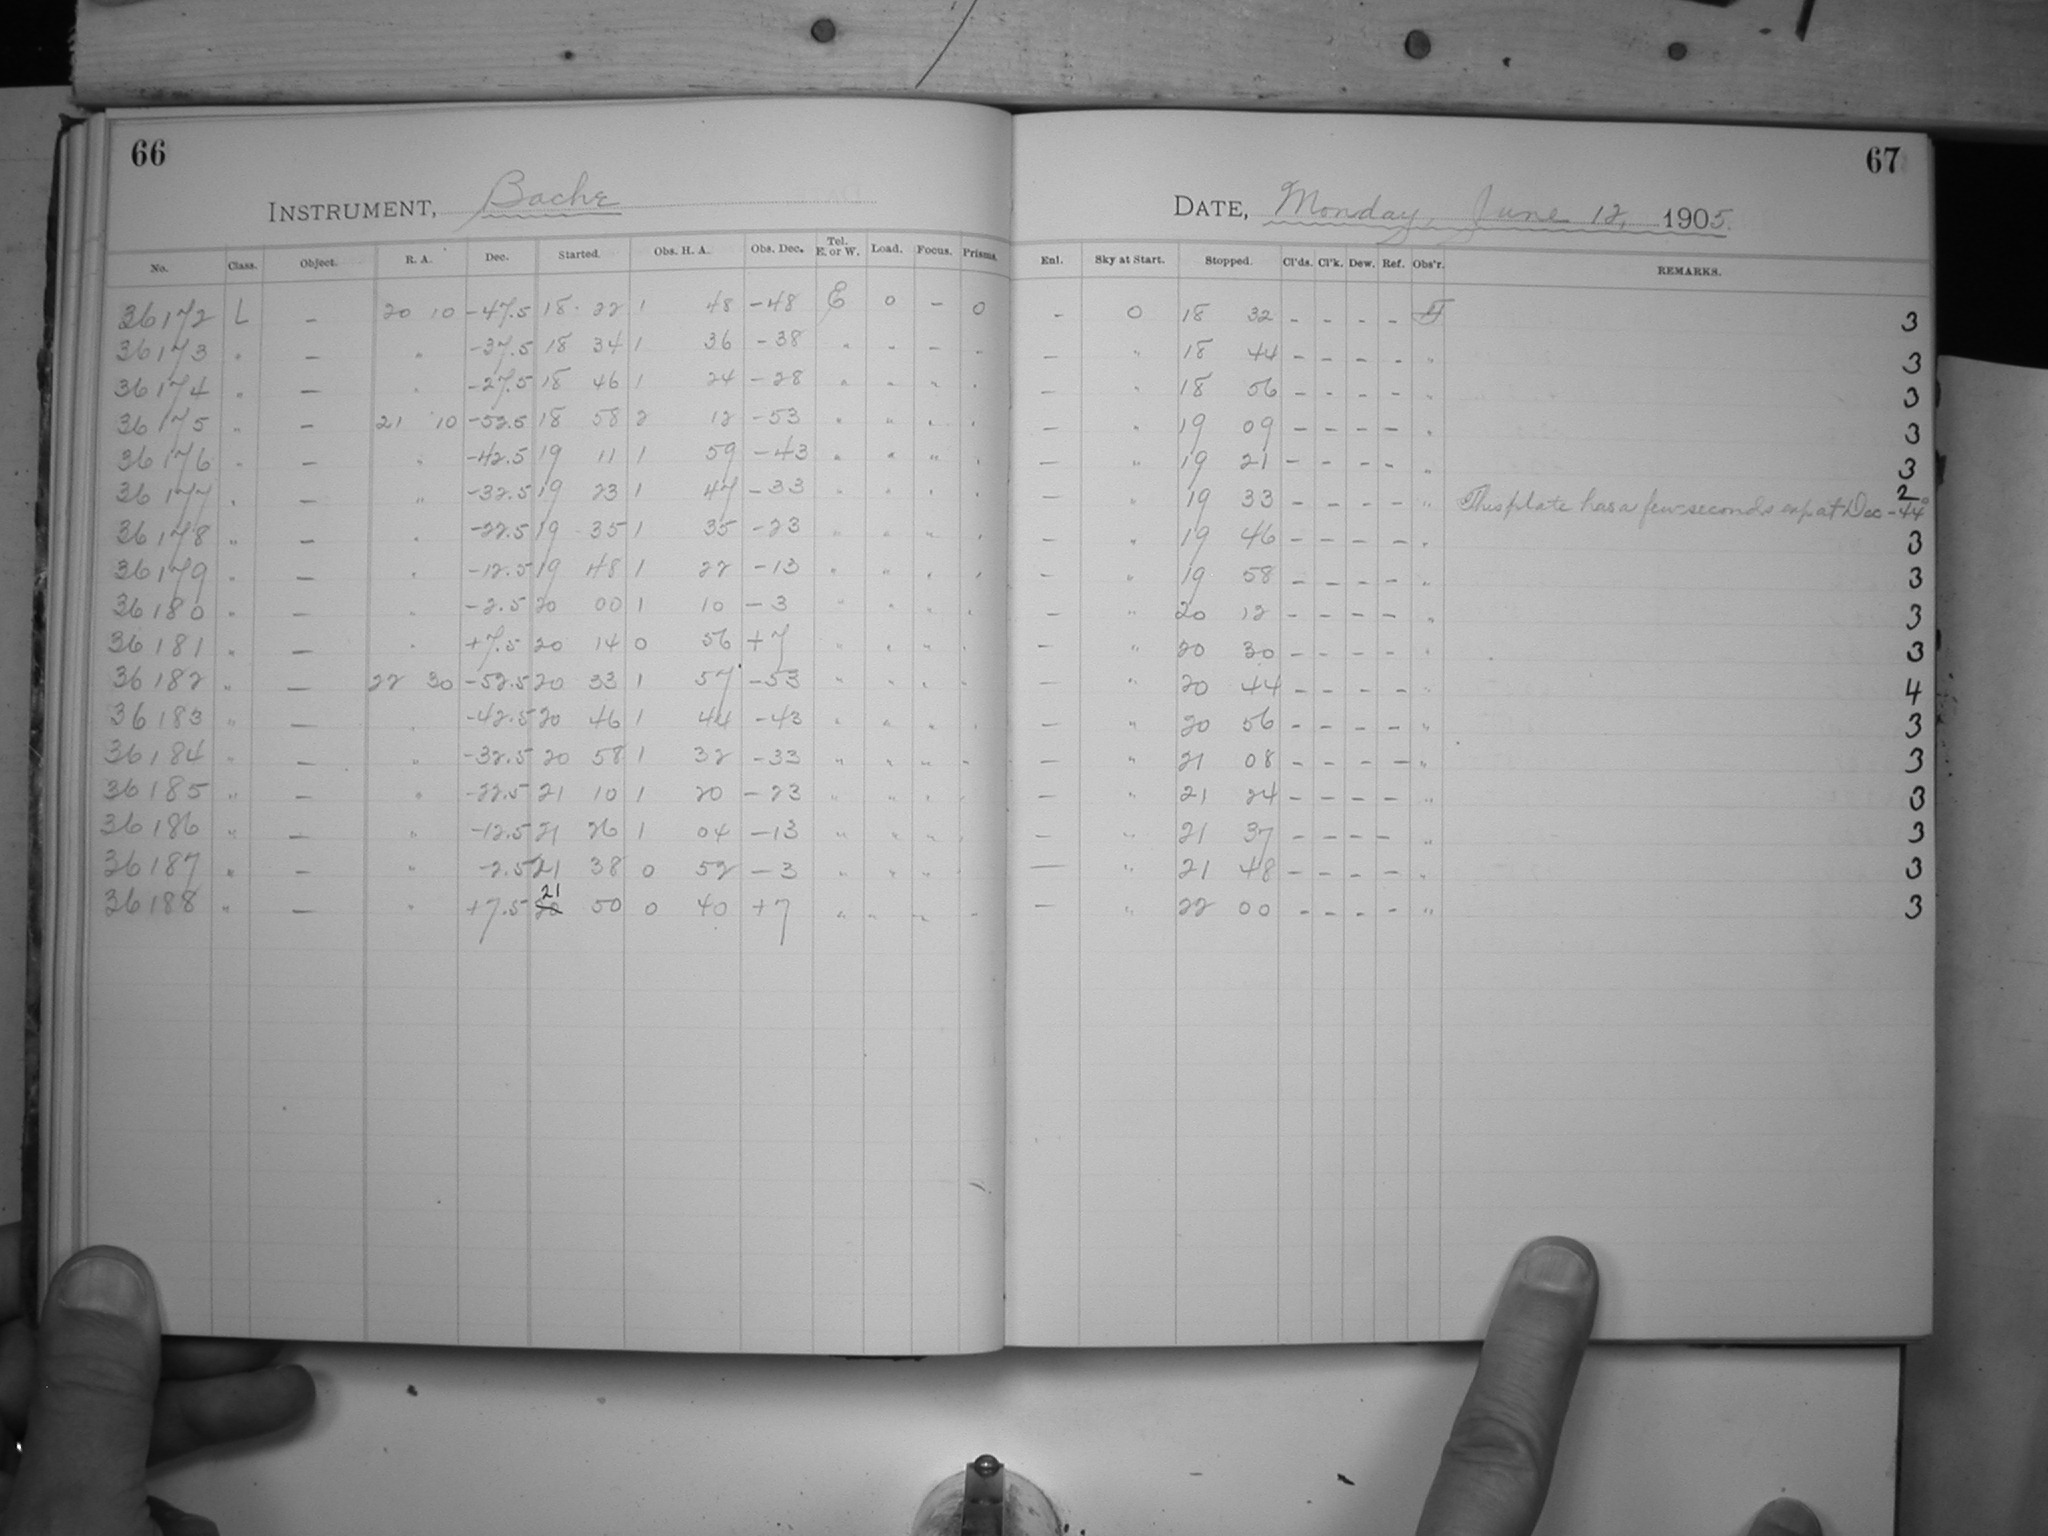 66
INSTRUMENT, Bache
No. Class. Object. R. A. Dec. Started. Obs. H. A. Obs. Dec. Tel. E. or W. Load. Focus. Prisms.
36172 L – 20 10 -47.5 18 22 1 48 -48 E 0 – 0
36173 " – " -37.5 18 34 1 36 -38 " – – "
36174 " – " -27.5 18 46 1 24 -28 " " " "
36175 " – 21 10 -52.5 18 58 2 12 -53 " " " "
36176 " – " -42.5 19 11 1 59 -43 " " " "
36177 " – " -32.5 19 23 1 47 -33 " " " "
36178 " – " -22.5 19 35 1 35 -23 " " " "
36179 " – " -12.5 19 48 1 22 -13 " " " "
36180 " – " -2.5 20 00 1 10 -3 " " " "
36181 " – " +7.5 20 14 0 56 +7 " " " "
36182 " – 22 30 -52.5 20 33 1 57 -53 " " " "
36183 " – " -42.5 20 46 1 44 -43 " " " "
36184 " – " -32.5 20 58 1 32 -33 " " " "
36185 " – " -22.5 21 10 1 20 -23 " " " "
36186 " – " -12.5 21 26 1 04 -13 " " " "
36187 " – " -2.5 21 38 0 52 -3 " " " "
36188 " – " +7.5 21 50 0 40 +7 " " " "
67
DATE, Monday, June 12, 1905.
Enl. Sky at Start. Stopped. Cl'ds. Cl'k. Dew. Ref. Obs'r. REMARKS.
– 0 18 32 – – – – 3
– " 18 44 – – – – " 3
– " 18 56 – – – – " 3
– " 19 09 – – – – " 3
– " 19 21 – – – – " 3
– " 19 33 – – – – " This plate has a few seconds exp at Dec -44° 2
– " 19 46 – – – – " 3
– " 19 58 – – – – " 3
– " 20 12 – – – – " 3
– " 20 30 – – – – " 3
– " 20 44 – – – – " 4
– " 20 56 – – – – " 3
– " 21 08 – – – – " 3
– " 21 24 – – – – " 3
– " 21 37 – – – – " 3
– " 21 48 – – – – " 3
– " 22 00 – – – – " 3